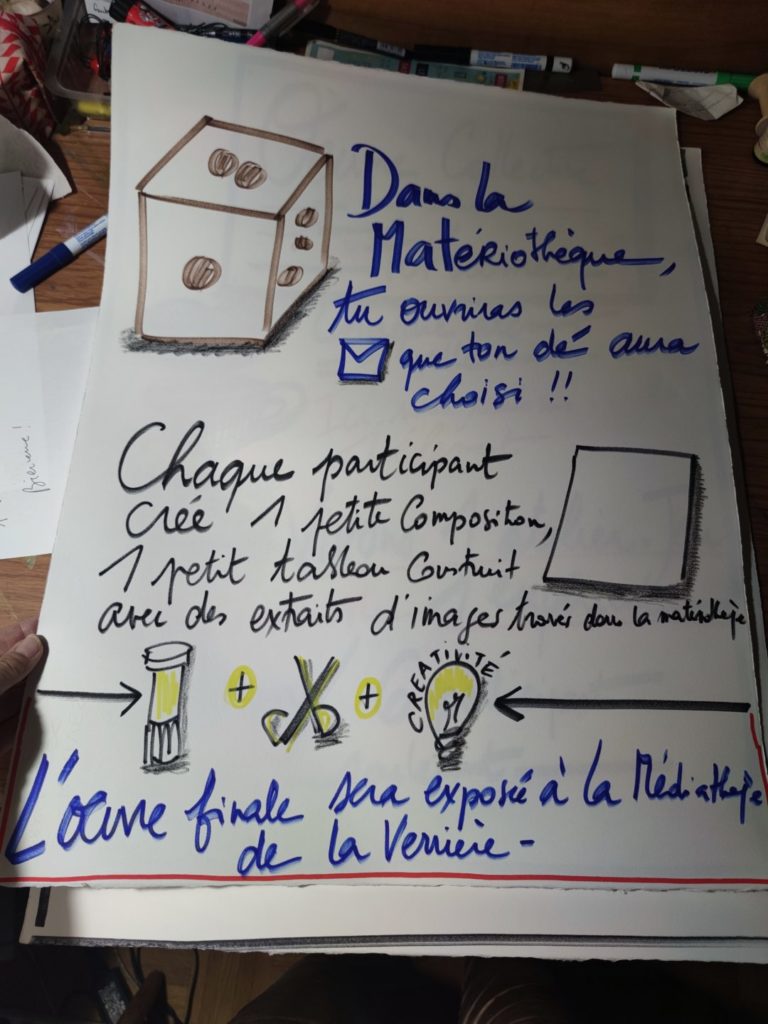 Dans la
Matériothèque,
tu ouvriras les
que ton dé aura
choisi !!
Chaque participant
créé 1 petite Composition,
1 petit tableau Construit
avec des extraits d'images trouvés dans la matériothèque
+ +
CREATIVITÉ
L'œuvre finale sera exposée à la Médiathèque
de la Verrière -
Bienvenue !